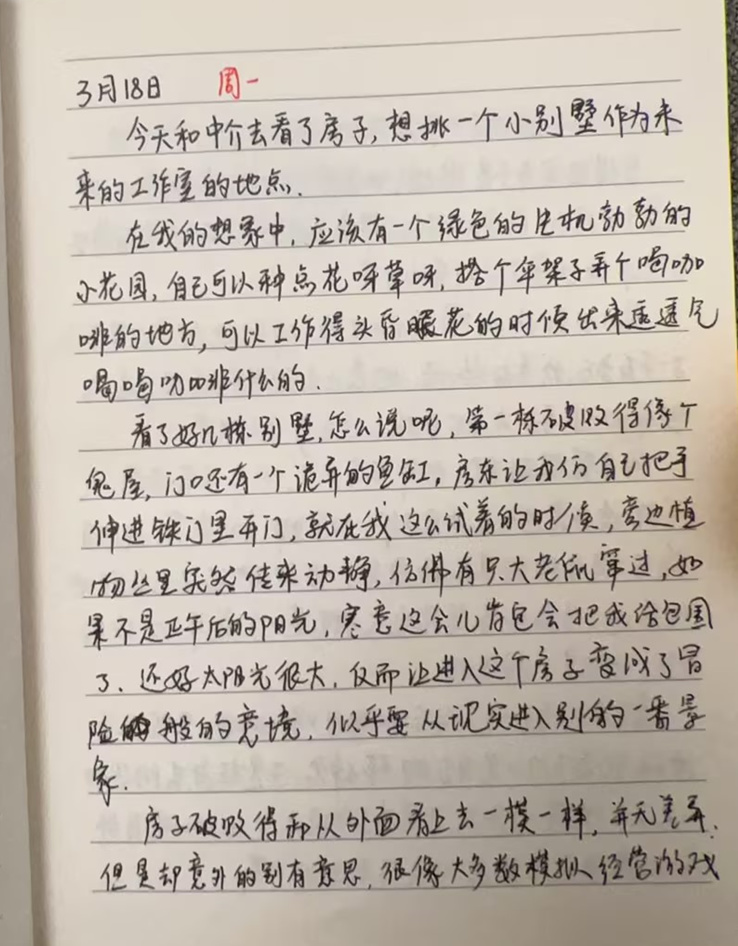 3月18日 周一
今天和中介去看了房子,想挑一个小别墅作为未
来的工作室的地点.
在我的想象中,应该有一个绿色的生机勃勃的
小花园,自己可以种点花呀草呀,搭个伞架子弄个喝咖
啡的地方,可以工作得头昏眼花的时候出来透透气
喝喝咖啡什么的.
看了好几栋别墅,怎么说呢,第一栋破败得像个
鬼屋,门口还有一个诡异的鱼缸,房东让我们自己把手
伸进铁门里开门,就在我这么试着的时候,旁边植
物丛里突然传来动静,仿佛有只大老鼠窜过,如
果不是正午后的阳光,寒意这会儿肯定会把我给包围
了.还好太阳光很大,反而让进入这个房子变成了冒
险般的意境,似乎要从现实进入别的一番景
象.
房子破败得和从外面看上去一模一样,并无差异.
但是却意外的别有意思,很像大多数模拟经营游戏